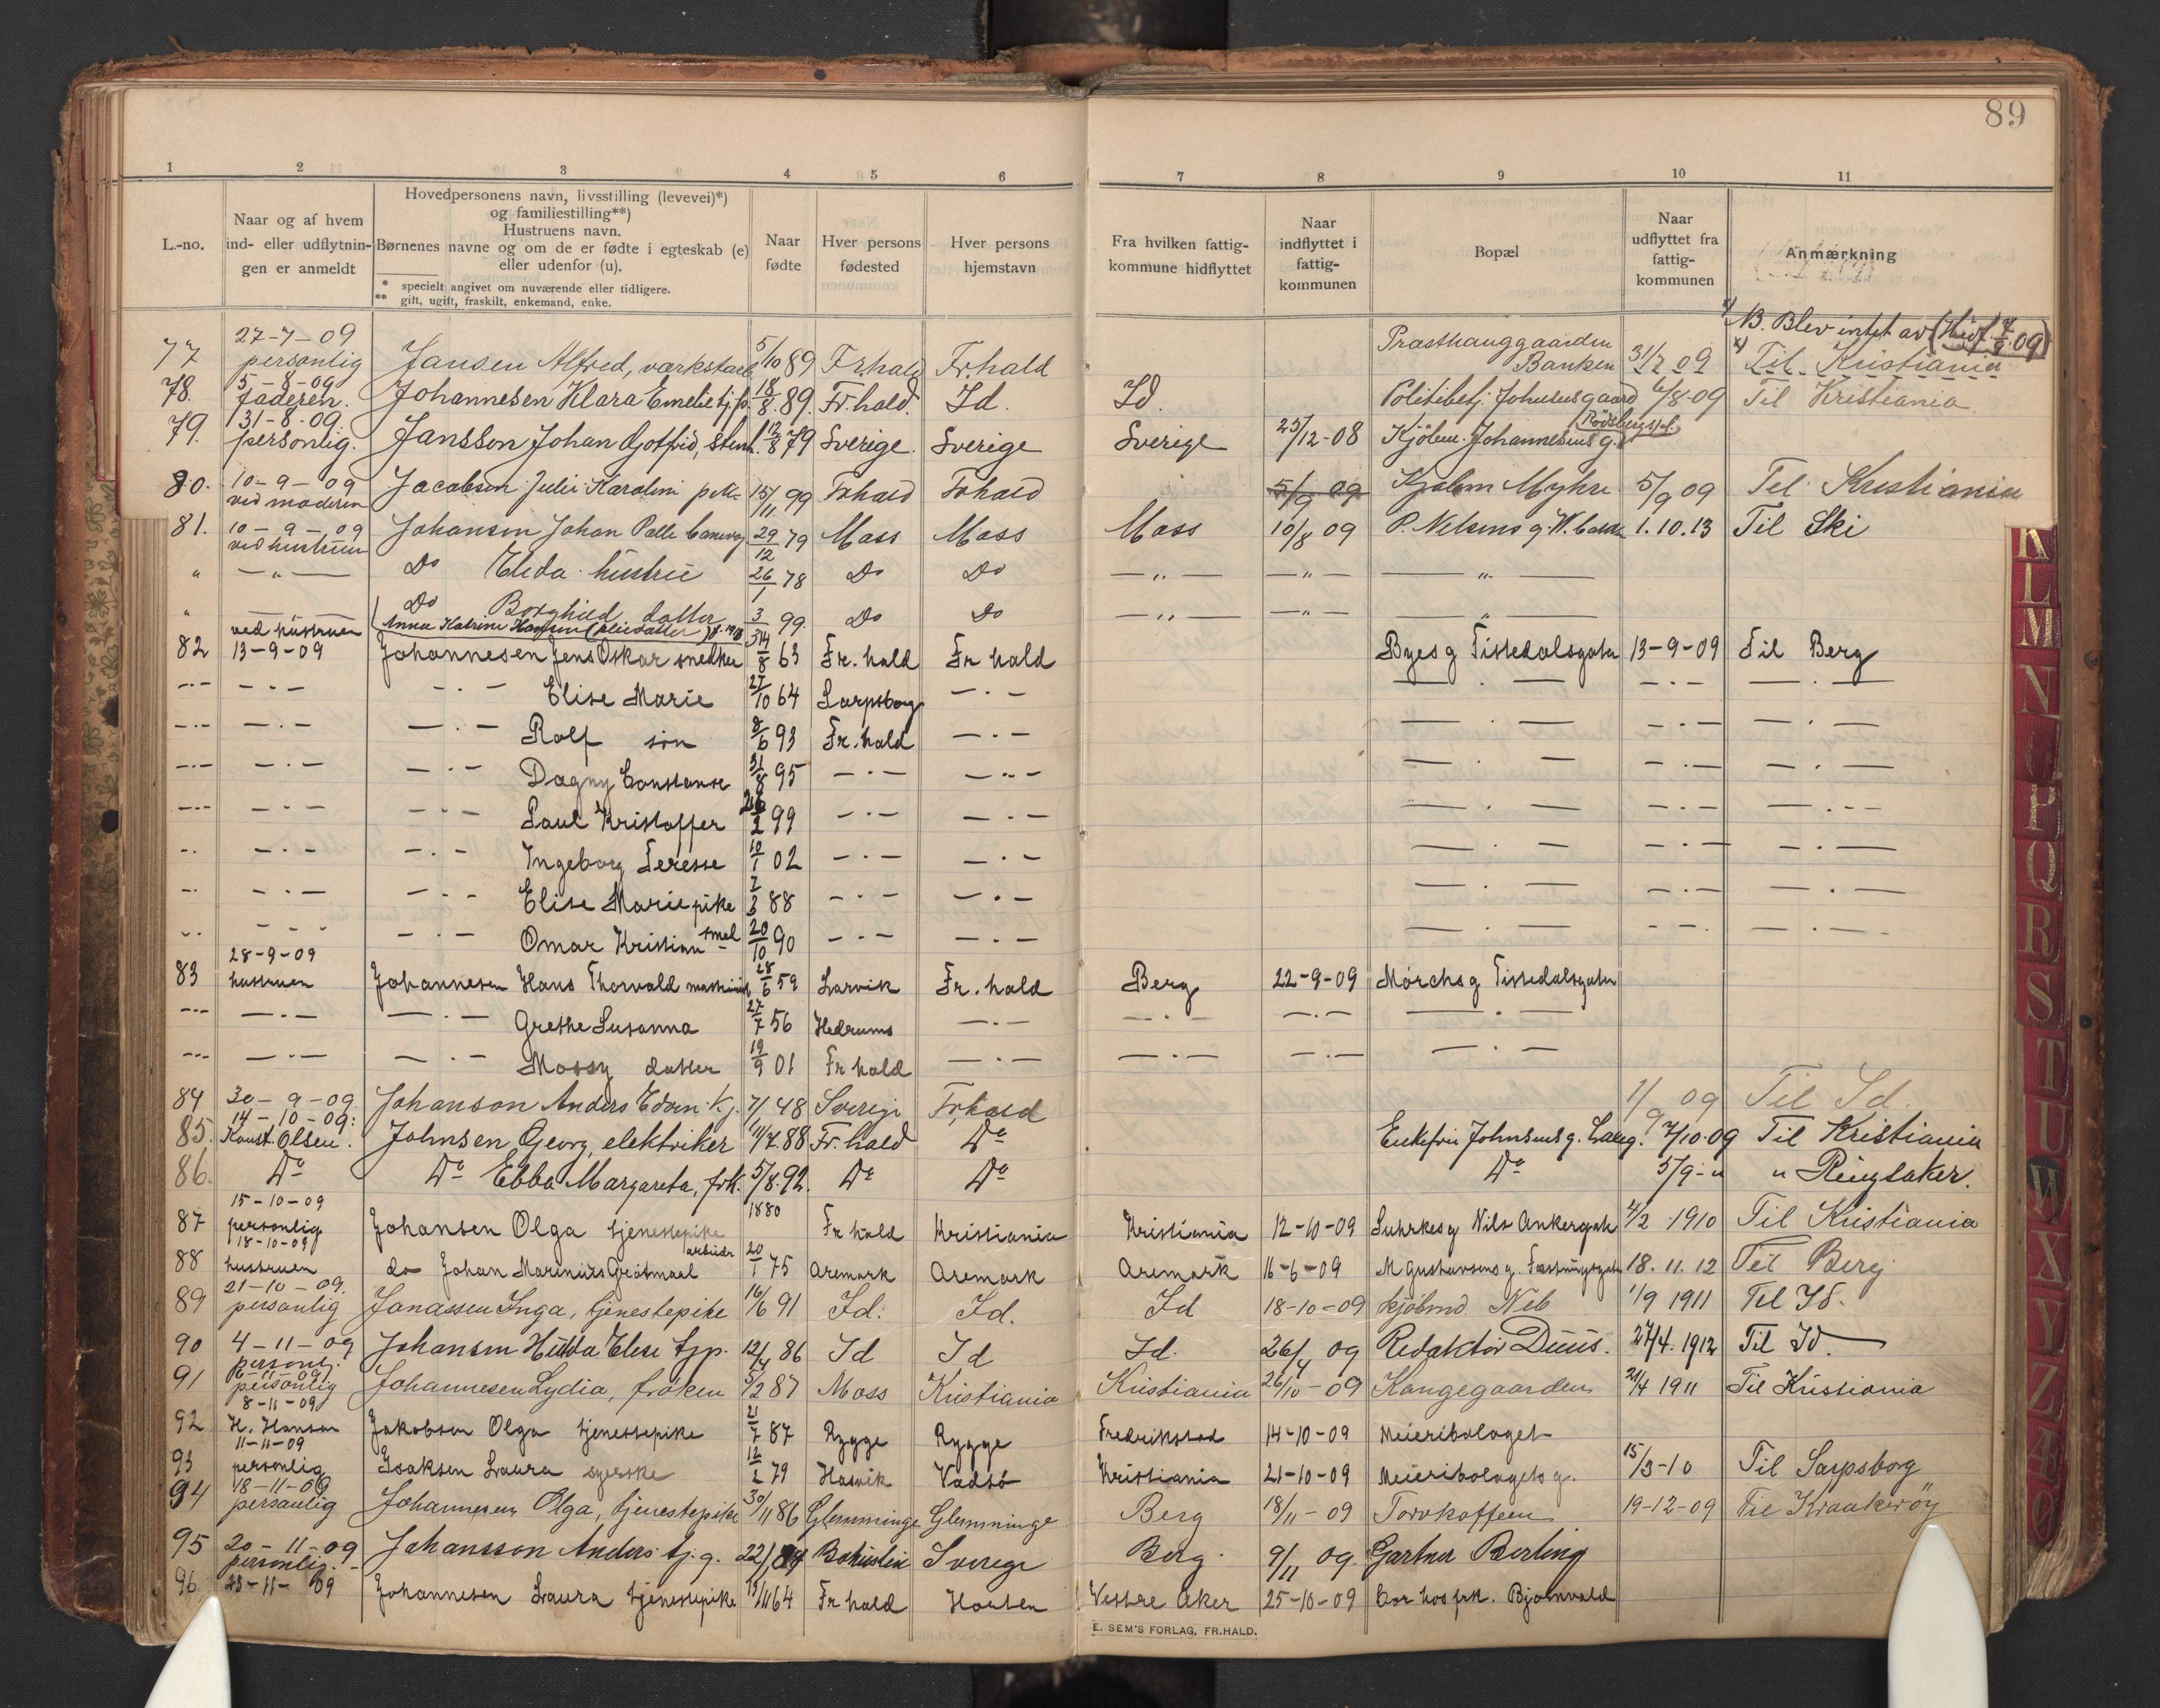 89
1 2 3 4 5 6 7 8 9 10 11
L.-no.
Naar og af hvem
ind- eller udflytnin-
gen er anmeldt
Hovedpersonens navn, livsstilling (levevei)*)
og familiestilling**)
Hustruens navn.
Børnenes navne og om de er fødte i egteskab (e)
eller udenfor (u).
* specielt angivet om nuværende eller tidligere.
** gift, ugift, fraskilt, enkemand, enke.
Naar
fødte
Hver persons
fødested
Hver persons
hjemstavn
Fra hvilken fattig-
kommune hidflyttet
Naar
indflyttet i
fattig-
kommunen
Bopæl
Naar
udflyttet fra
fattig-
kommunen
Anmærkning
x) N.B. Blev intet av
27-7-09
77 personlig Jansen Alfred, 5/10 89 Fr.hald Fr.hald Banken 31/7 09 x) Til Kristiania
5-8-09
78. faderen. Johannesen Klara Emelie tj.p. 18/8 89. Fr.hald. Id. Id. Politibetj. Johnsensgaard 6/8-09 Til Kristiania.
31-8-09.
79. personlig. Jansson Johan Gotfrid, 12/8 79 Sverige. Sverige Sverige 25/12-08 Kjøbm. Johannesens g.
80. 10-9-09 Jacobsen Julie Karoline pike 15/11 99 Frhald Frhald 5/9 09 Kjøbm Myhre 5/9 09 Til Kristiania
ved moderen
81. 10-9-09 Johansen Johan Palle 29/12 79 Moss Moss Moss 10/8 09 P. Nilsens g. 1.10.13 Til Ski
ved hustruen
" — " — Do Elida hustru 26/1 78 Do Do — " — — " — — " —
" Do Borghild datter 3/3 99 Do Do — " — — " — — " —
Anna Katrine
ved hustruen
82 13-9-09 Johannesen Jens Oskar snedker 14/8 63 Fr.hald Fr hald Byes g Tistedalsgaten 13-9-09 Til Berg
— . — Elise Marie 27/10 64 Sarpsborg — . —
— . — Rolf søn 8/6 93 Fr.hald — . —
— . — Dagny Constanse 31/8 95 — . — — . —
— . — Paul Kristoffer 26/2 99 — . — — . —
— . — Ingeborg Terese 10/1 02 — . — — . —
— . — Elise Marie pike 7/3 88 — . — — . —
— . — Omar Kristian 20/10 90 — . — — . —
28-9-09
83 hustruen Johannesen Hans Thorvald maskinist 28/6 59 Larvik Fr.hald Berg 22-9-09 Mørchs g Tistedalsgaten
— . — Grethe Susanna 27/7 56 Hedrums — . — — . — — . — — . —
— . — Mossy datter 19/9 01 Fr hald — . — — . — — . — — . —
84 30-9-09 Johanson Anders Edvin 7/1 48 Sverige Frhald 1/9 09 Til Id.
14-10-09:
85. Konst. Olsen. Johnsen Georg, elektriker 11/7.88 Fr.hald Do Enkefru Johnsens g. Langg. 7/10-09 Til Kristiania
86. Do Do Ebba Margareta, frk. 5/8.92. Do Do Do 5/9-" " Ringsaker.
15-10-09
87 personlig Johansen Olga tjenestepike 1880 Fr hald Kristiania Kristiania 12-10-09 Luhrkes g Nils Ankersgate 4/2 1910 Til Kristiania
18-10-09
88 hustruen do Johan Marinius Grøtmael arbeider 20/1 75 Aremark Aremark Aremark 16-6-09 M Gustavsens g. 18.11.12 Til Berg
21-10-09.
89 personlig Jonassen Inga, tjenestepike 16/6 91 Id. Id. Id 18-10-09 Kjøbmd. Neb 1/9 1911 Til Id.
90 4-11-09 Johansen Hulda Elise tjp. 12/4 86 Id Id Id. 26/4 09 Redaktør Duus. 27/4. 1912 Til Id.
personl.
6-11-09
91 personlig Johannesen Lydia, frøken 5/2 87 Moss Kristiania Kristiania 26/10-09 Kongegaarden 24/4 1911 Til Kristiania
8-11-09
92 H. Hansen Jakobsen Olga tjenestepike 21/7 87 Rygge Rygge Fredrikstad 14-10-09 Meieribolaget
11-11-09
93 personlig Isaksen Laura syerske 12/2 79 Hasvik Vadsø Kristiania 21-10-09 Meieribolagets g. 15/3-10 Til Sarpsborg
18-11-09
94 personlig Johannesen Olga, tjenestepike 30/11 86 Glemminge Glemminge Berg 18/11-09 Torvkaffeen 19-12-09 Til Kraakerøy
95 20-11-09 Johansson Anders tj.g. Bohuslen Sverige Berg. 9/11 09. Gartner Berling
personlig.
96 23-11-09 Johannesen Laura tjenestepike 64 Fr hald Horten Vestre Aker 25-10-09 Bor hos frk. Bjørnvald
E. SEM'S FORLAG, FR.HALD.
K
L
M
N
P
Q
R
S
T
U
W
X
Y
Z
Æ
Ø